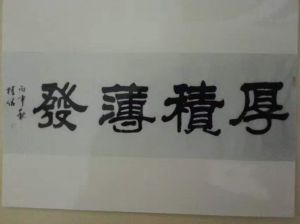 厚積薄發
丙申秋